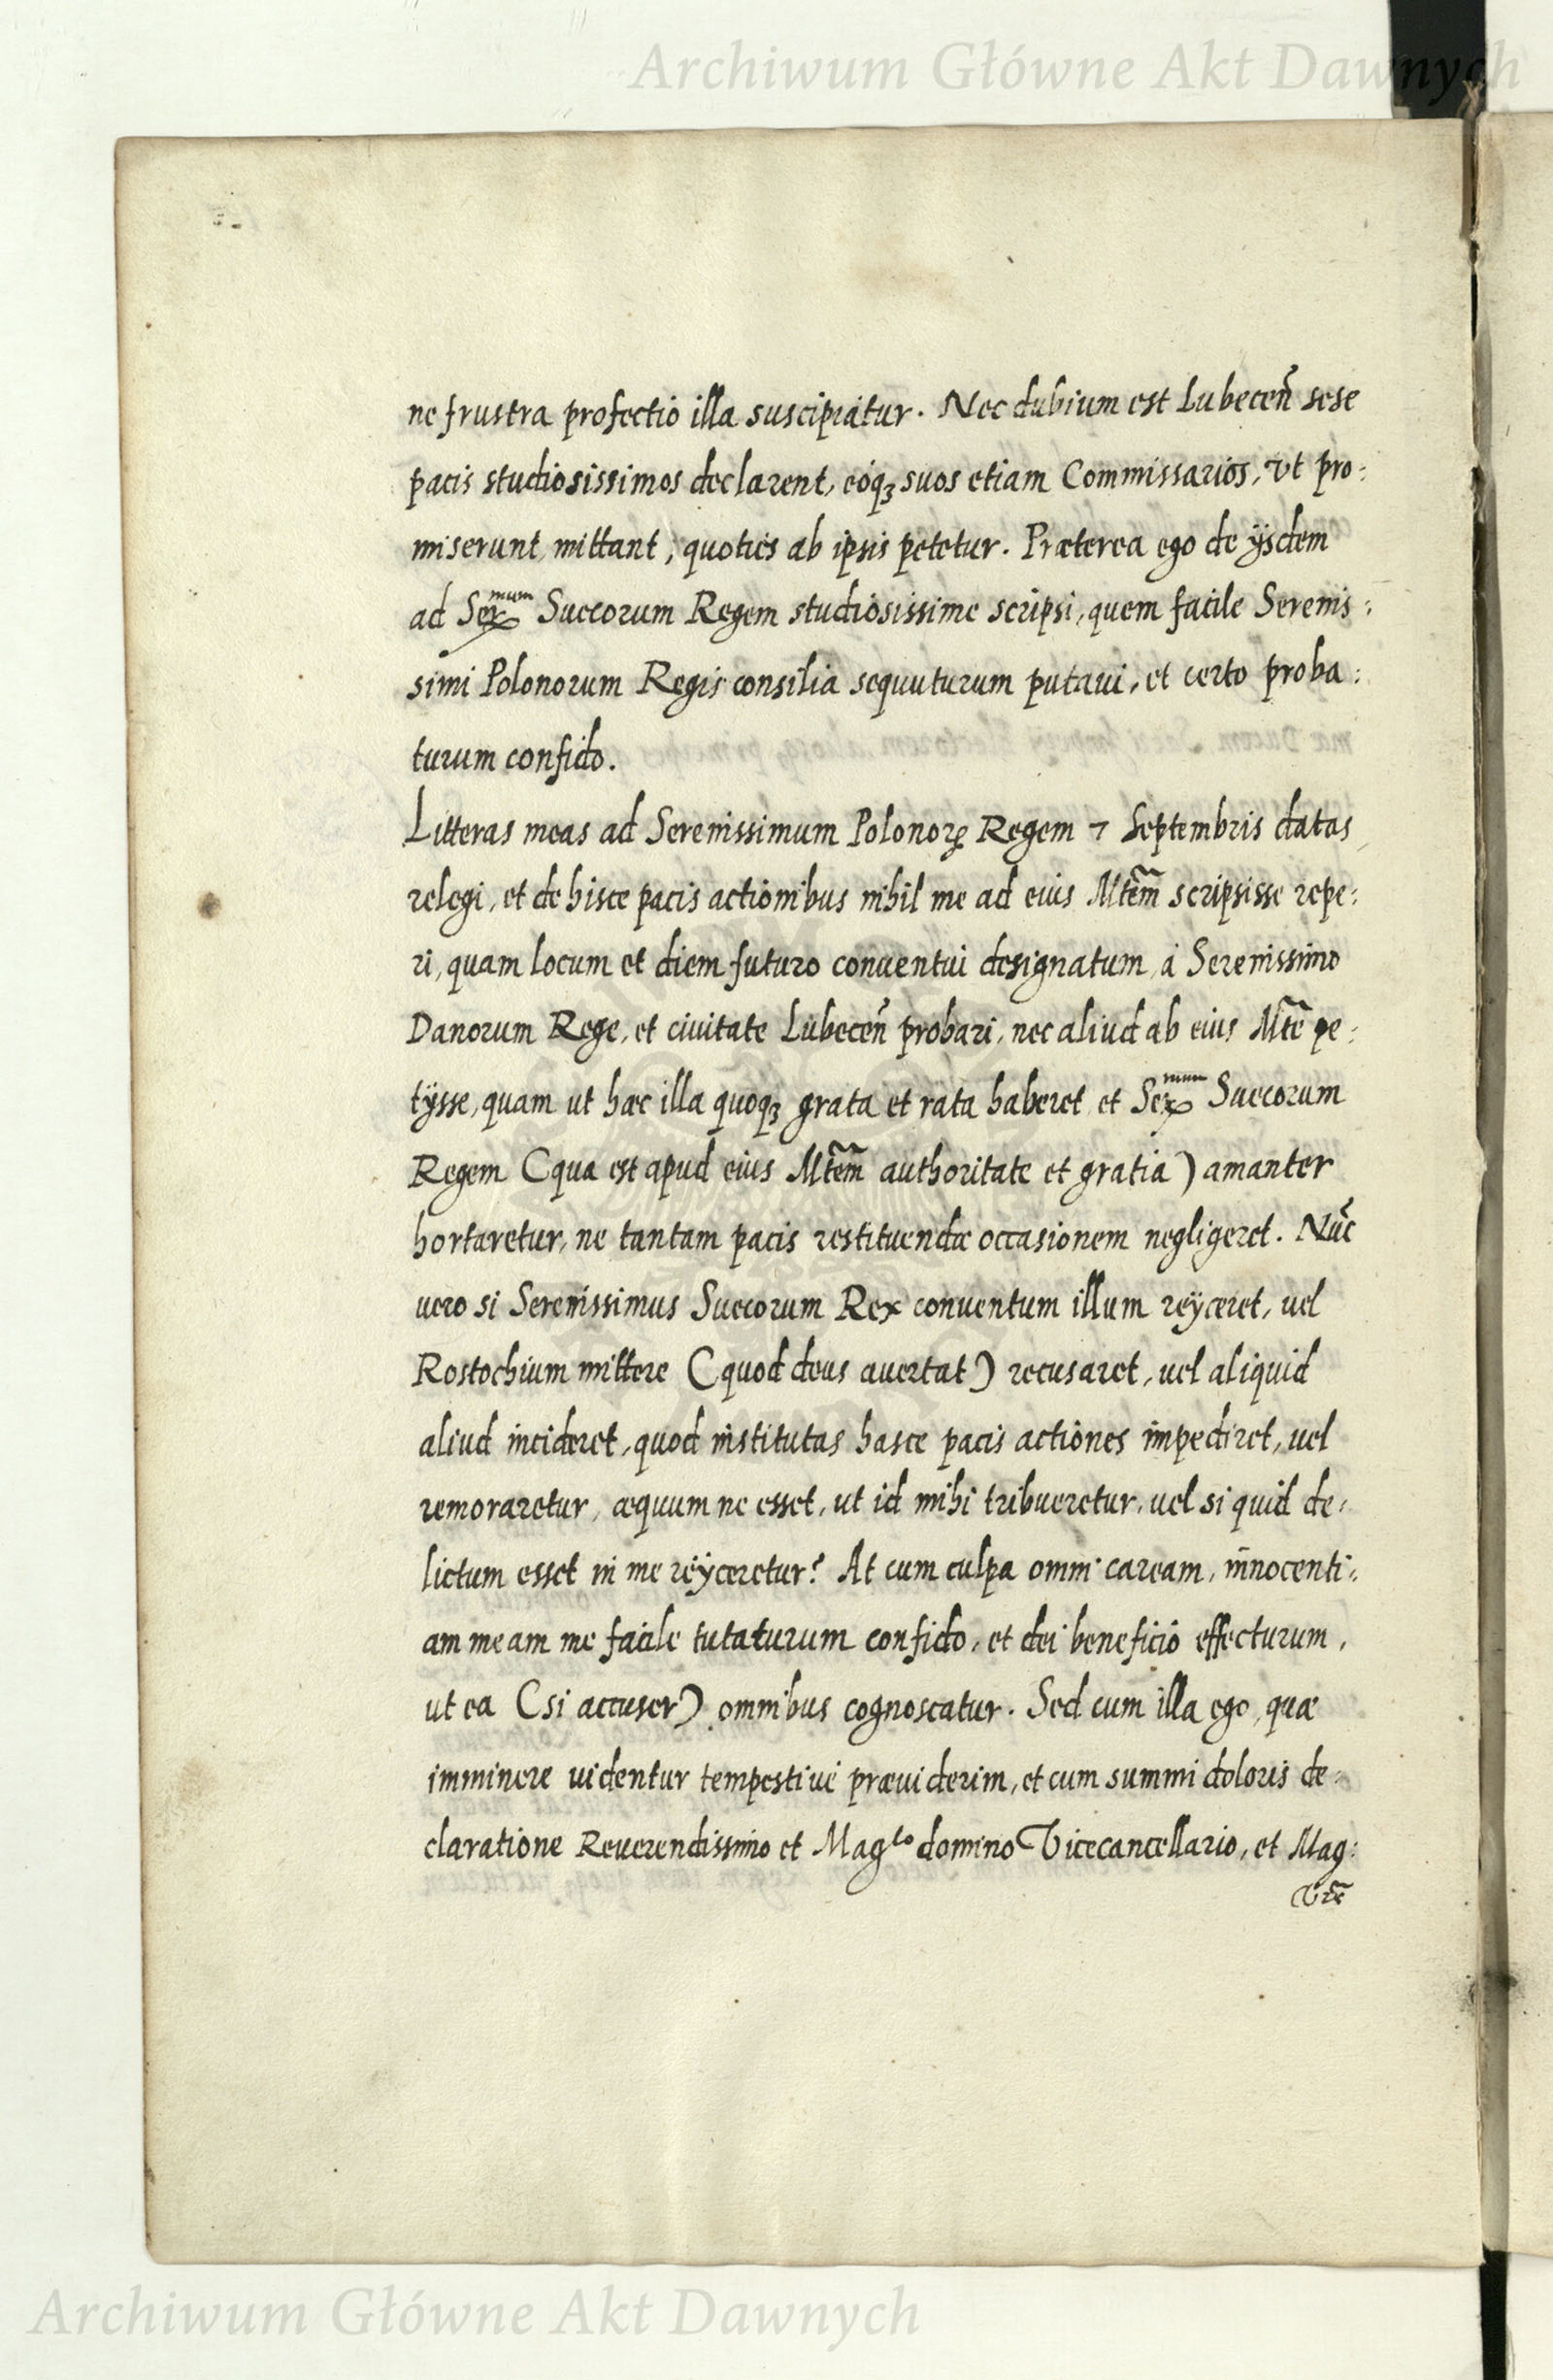 Archiwum Główne Akt Dawnych
ne frustra profectio illa suscipiatur. Nec dubium est Lubecen̄ sese
pacis studiosissimos declarent, eóqꝫ suos etiam Commissarios, vt pro:
miserunt, mittant, quoties ab ipsis petetur. Præterea ego de ÿsdem
ad Ser mum Suecorum Regem studiosissime scripsi, quem facile Serenis:
simi Polonorum Regis consilia sequuturum putaui, et certo proba:
turum confido.
Litteras meas ad Serenissimum Polonoꝝ Regem 7 Septembris datas
relegi, et de hisce pacis actionibus nihil me ad eius Mtem̃ scripsisse repe:
ri, quam locum et diem futuro conuentui designatum, á Serenissimo
Danorum Rege, et ciuitate Lubecen̄ probari, nec aliud ab eius Mtẽ pe:
tÿsse, quam ut hæc illa quoqꝫ grata et rata haberet, et Ser mum Suecorum
Regem (qua est apud eius Mtem̃ authoritate et gratia) amanter
hortaretur, ne tantam pacis restituendæ occasionem negligeret. Nūc
uero si Serenissimus Suecorum Rex conuentum illum reÿceret, uel
Rostochium mittere (quod deus auertat) recusaret, uel aliquid
aliud incideret, quod institutas hasce pacis actiones impediret, uel
remoraretur, æquum ne esset, ut id mihi tribueretur, uel si quid de:
lictum esset in me reÿceretur? At cum culpa omni caream, innocenti:
am meam me facile tutaturum confido, et dei beneficio effecturum,
ut ea (si accuser) omnibus cognoscatur. Sed cum illa ego, quæ
imminere uidentur tempestiué præuiderim, et cum summi doloris de:
claratione Reuerendissimo et Mag co domino Vicecancellario, et Mag:
Vrẽ
Archiwum Główne Akt Dawnych